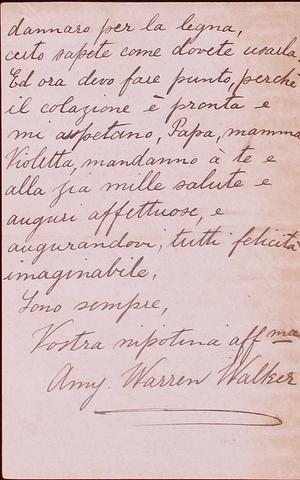 dannaro per la legna,
certo sapete come dovete usarla.
Ed ora devo fare punto, perchè
il colazione è pronta e
mi aspetano, Papa, mamma
Violetta, mandanno à te e
alla zia mille salute e
auguri affettuose, e
augurandovi, tutti felicità
imaginabile,
Sono sempre,
Vostra nipotina aff ma
Amy. Warren Walker